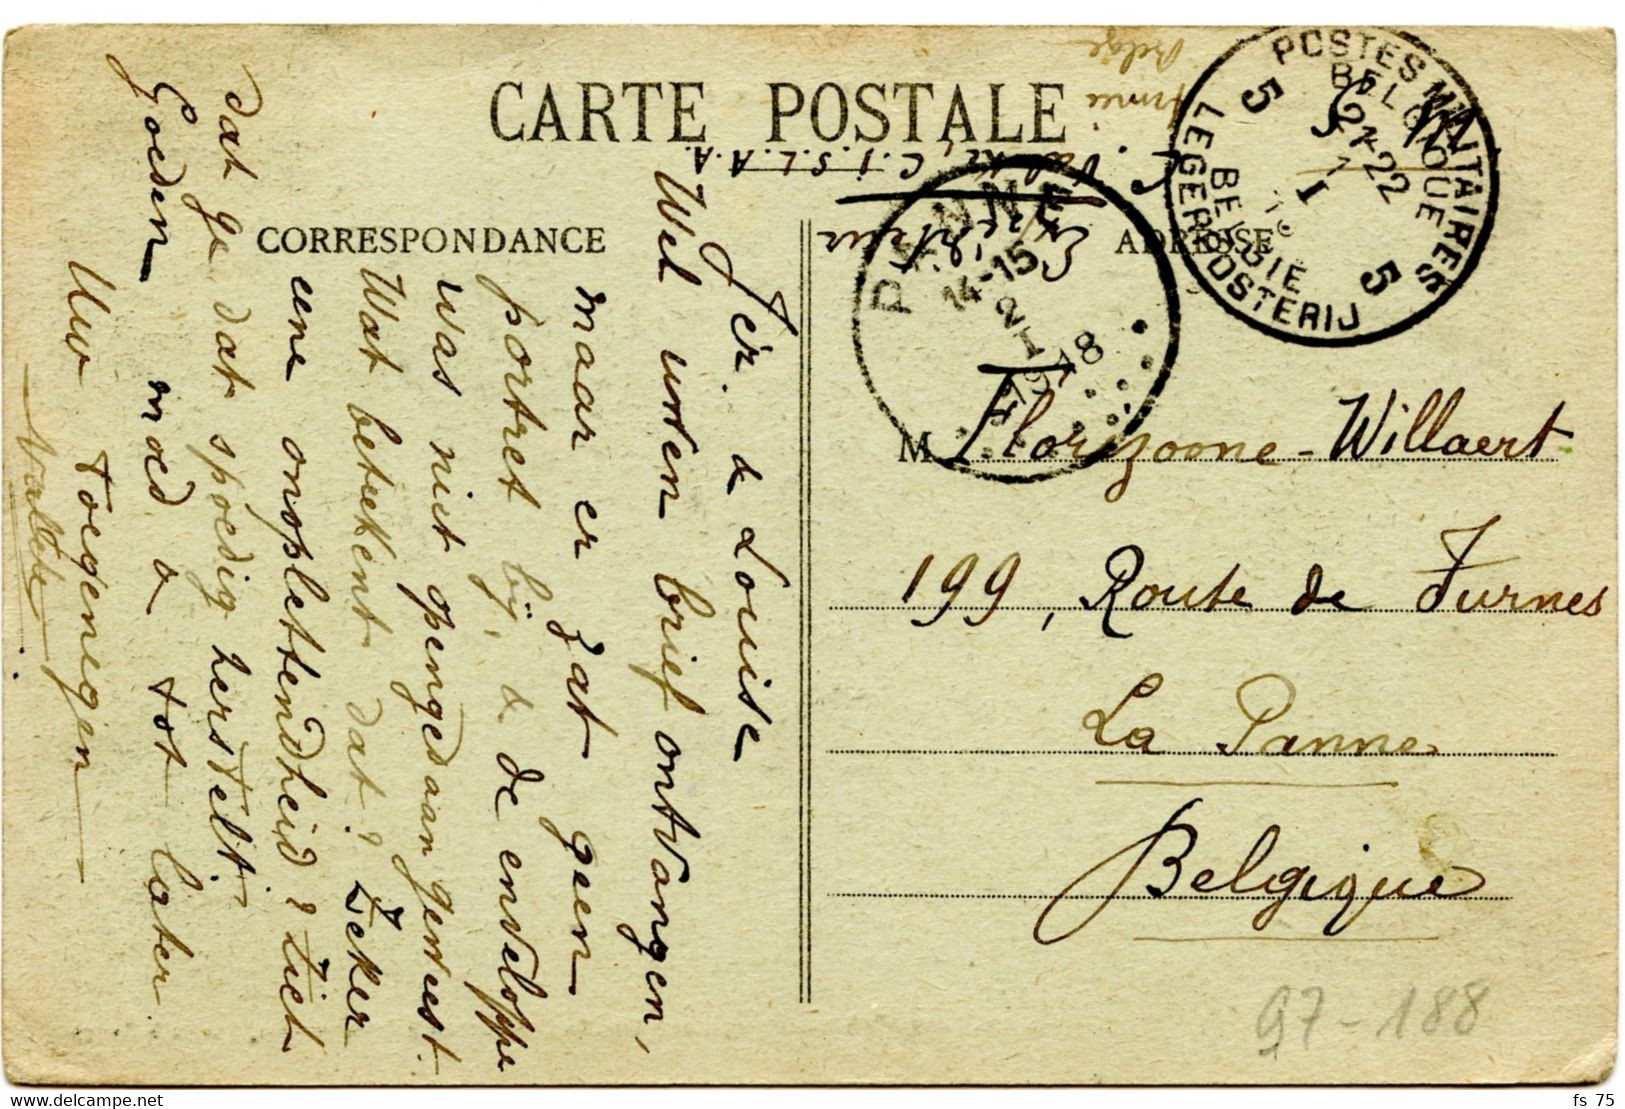 CARTE POSTALE
CORRESPONDANCE
ADRESSE
Jér. & Louise
Wel uwen brief ontvangen,
maar er zat geen
portret bij, & de enveloppe
was niet opengedaan geweest.
Wat betekent dat? Zeker
eene onoplettendheid? Ziet
dat ge dat spoedig herstelt.
Goeden moed & tot later.
Uw toegenegen
Valcke
Expéditeur
J. Valcke, C.I.S.L.A.A.
Armée Belge
S.M.
POSTES MILITAIRES
BELGIQUE
5 5
21-22
1 I
BELGIE
LEGERPOSTERIJ
PANNE
14-15
2 I
1918
M Florizoone-Willaert
199, Route de Furnes
La Panne
Belgique
97-188
www.delcampe.net
fs_75